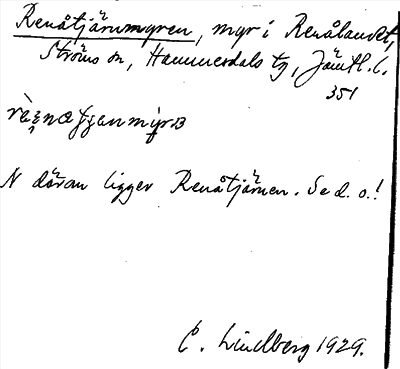 Renåtjärnmyren, myr i Renålandet,
Ströms sn, Hammerdals tg, Jämtl. l.
351
N däran ligger Renåtjärnen. Se d. o.!
C. Lindberg 1929.